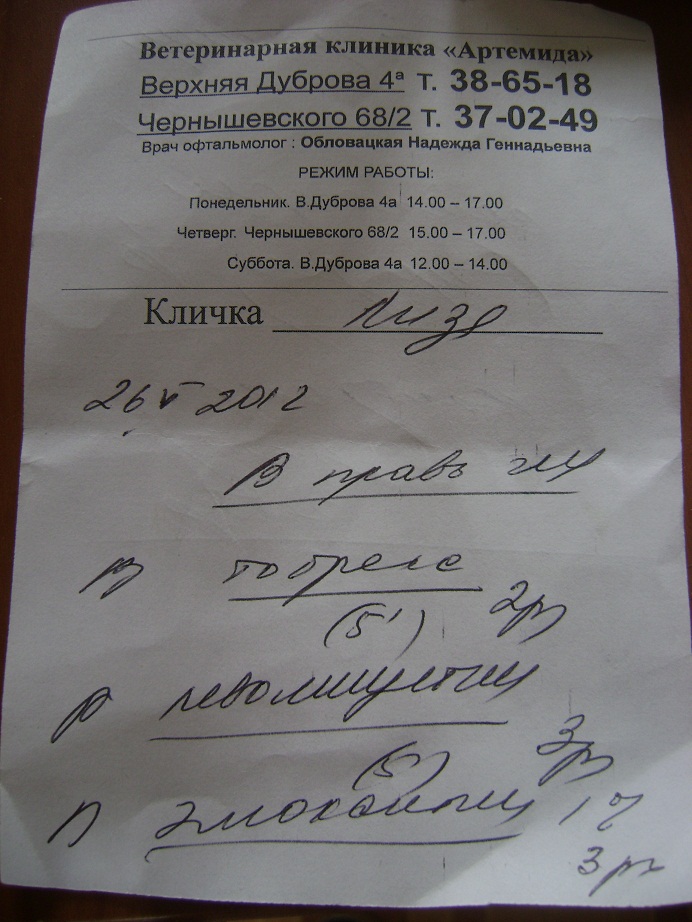 Ветеринарная клиника «Артемида»
Верхняя Дуброва 4ª т. 38-65-18
Чернышевского 68/2 т. 37-02-49
Врач офтальмолог : Обловацкая Надежда Геннадьевна
РЕЖИМ РАБОТЫ:
Понедельник. В.Дуброва 4а 14.00 – 17.00
Четверг. Чернышевского 68/2 15.00 – 17.00
Суббота. В.Дуброва 4а 12.00 – 14.00
Кличка Лиза
26 V 2012
В правы
тобрекс
(5') 2р
левомицетин
(5) 3р
1%
3 р